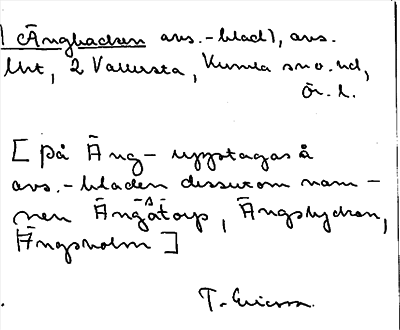 Ängbacken avs.-blad), avs.
lht, 2 Vallersta, Kumla sn o. hd,
Ör. l.
[på Äng- upptagas å
avs.-bladen dessutom nam-
nen Ängatorp, Ängslyckan,
Ängsholm]
T. Ericsson.